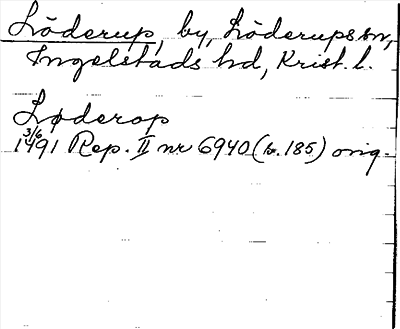 Löderup, by, Löderups sn,
Ingelstads hd, Krist. l.
Løderop
3/6
1491 Rep. II nr 6940 (s. 185) orig.